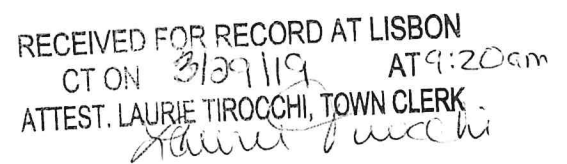 RECEIVED FOR RECORD AT LISBON
CT ON 3/29/19 AT 9:20am
ATTEST. LAURIE TIROCCHI, TOWN CLERK
Laurie Tirocchi